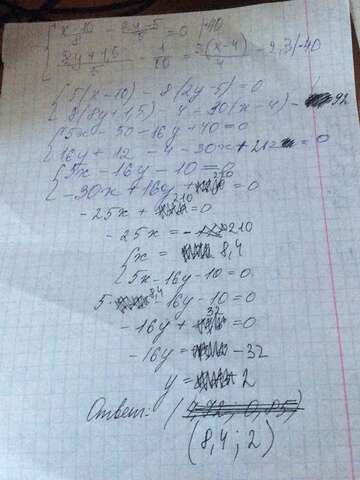 { x-10/8 - 2y-5/5 = 0 |·40
{ 2y+1,5/5 - 1/10 = 3(x-4)/4 - 2,3 |·40
{ 5(x-10) - 8(2y-5) = 0
{ 8(2y+1,5) - 4 - 30(x-4) - 92
{ 5x - 50 - 16y + 40 = 0
{ 16y + 12 - 4 - 30x + 212 = 0
{ 5x - 16y - 10 = 0
{ -30x + 16y + 210 = 0
-25x + 210 = 0
-25x = -210
{ x = 8,4
{ 5x - 16y - 10 = 0
5 · 8,4 - 16y - 10 = 0
-16y + 32 = 0
-16y = -32
y = 2
Ответ: (4,72; 0,85)
(8,4; 2)